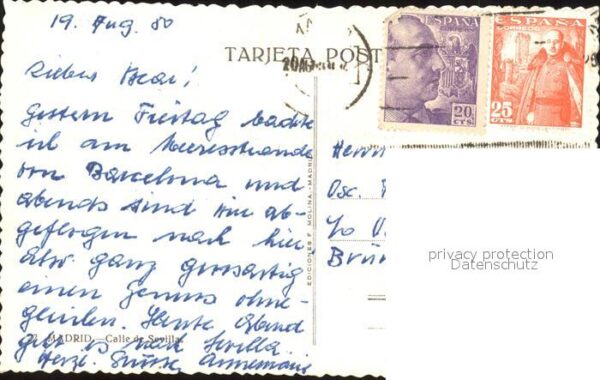 19. Aug. 50
TARJETA POST
Lieber Oscar!
Gestern Freitag badete
ich am Meeresstrande
von Barcelona und
abends sind wir ab-
geflogen nach hier
ganz grossartig
einen Genuss ohne-
gleichen. Heute Abend
geht es nach Sevilla.
Herzl. Grüsse Annemarie
MADRID.-Calle de Sevilla.
EDICIONES F. MOLINA.-MADRID
ESPAÑA
20
CTS.
ESPAÑA
CORREOS
25
CTS
Herrn
Osc.
c/o
Brü
privacy protection
Datenschutz